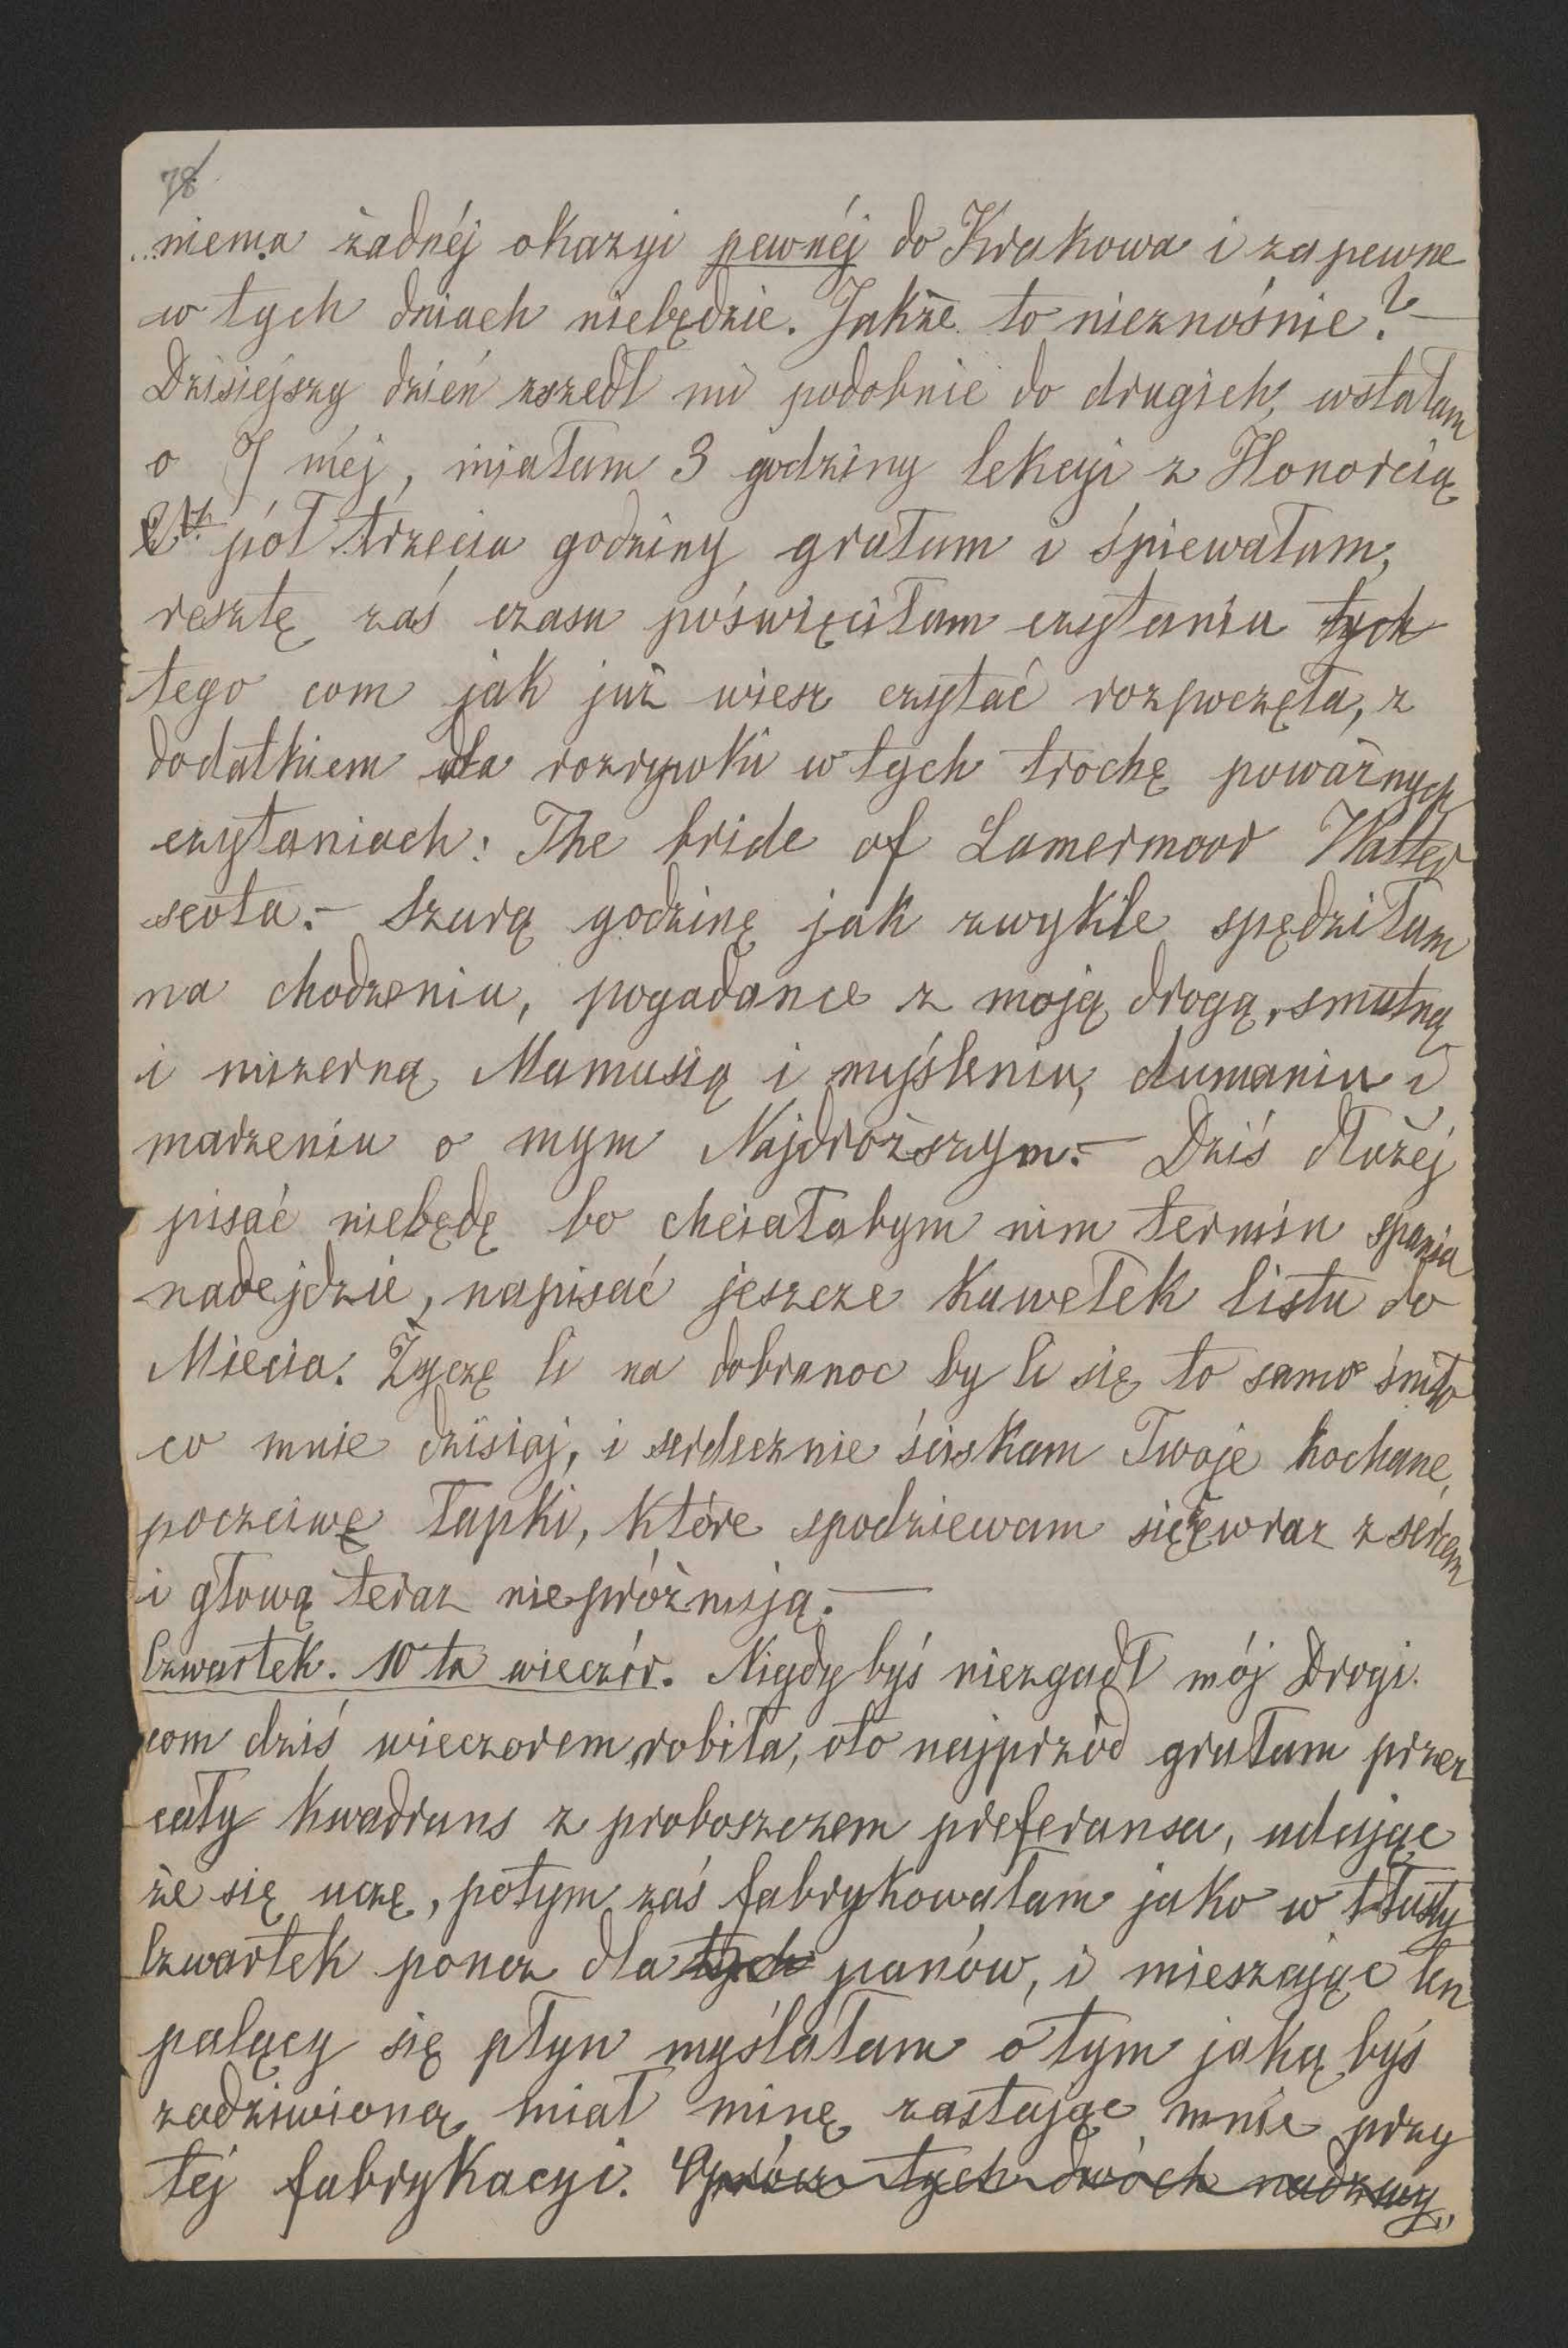 78
niema żadnéj okazyi pewnéj do Krakowa i zapewne
w tych dniach niebędzie. Jakże to nieznośnie? —
Dzisiejszy dzień zszedł mi podobnie do drugich, wstałam
o 7 méj, miałam 3 godziny lekcyi z Honorcią
pół trzecia godziny grałam i śpiewałam,
resztę zaś czasu poświęciłam czytaniu tych
tego com jak już wiesz czytać rozpoczęła, z
dodatkiem dla rozrywki w tych trochę poważnych
czytaniach: The bride of Lamermoor Walter
scota. — Szarą godzinę jak zwykle spędziłam
na chodzeniu, pogadance z moją drogą, smutną
i mizerną Mamusią i myśleniu, dumaniu i
marzeniu o mym Najdroższym. — Dziś dłużéj
pisać niebędę bo chciałabym nim termin spania
nadejdzie, napisać jeszcze kawełek listu do
Miecia. Życzę Ci na dobranoc by Ci się to samo śniło
co mnie dzisiaj, i serdecznie ściskam Twoje kochane,
poczciwe łapki, które spodziewam się że wraz z sercem
i głową teraz niepróżnują. —
Czwartek. 10 ta wieczór. Nigdybyś niezgadł mój Drogi
com dziś wieczorem robiła, oto najprzód grałam przez
cały kwadrans z proboszczem preferansa, udając
że się uczę, potym zaś fabrykowałam jako w tłusty
Czwartek poncz dla tych panów, i mieszając ten
palący się płyn myślałam o tym jaką byś
zadziwioną miał minę zastając mnie przy
téj fabrykacyi. Oprócz tych dwóch nadzwy„